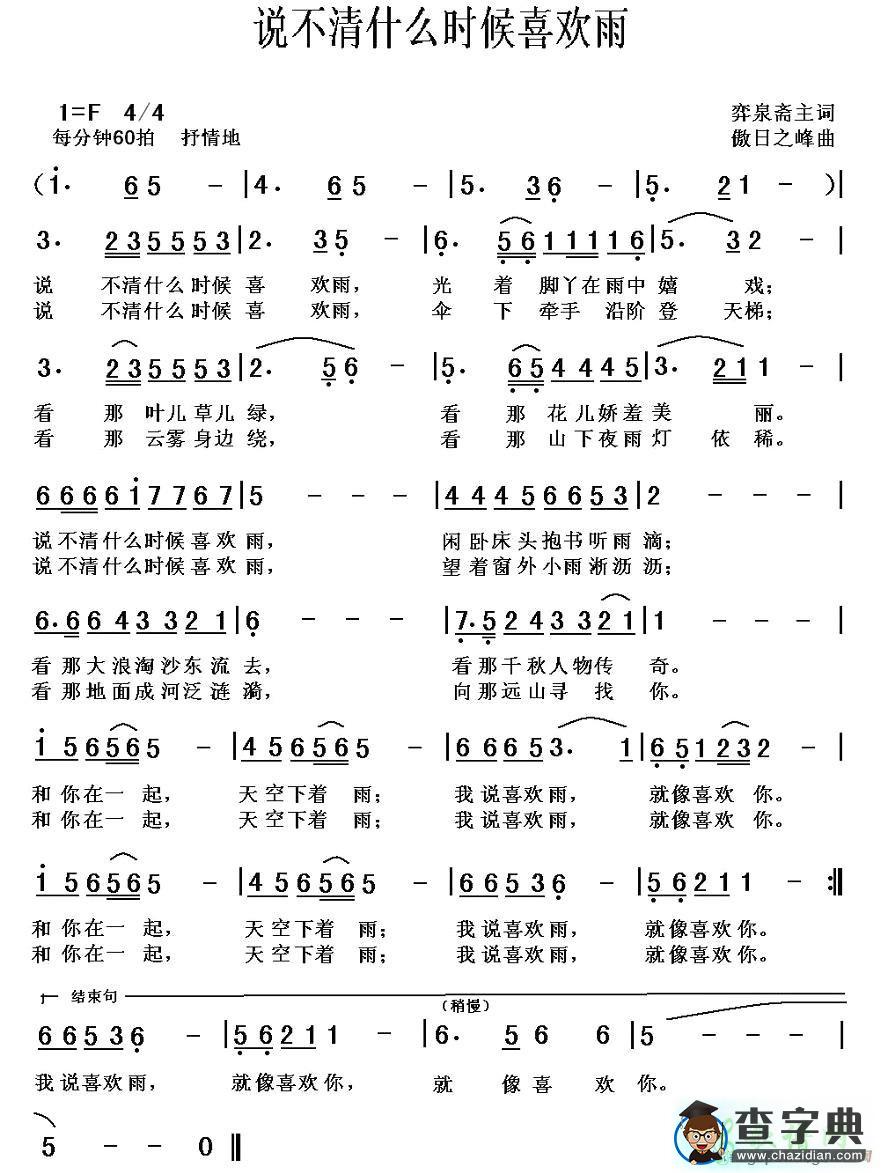 说不清什么时候喜欢雨
1=F 4/4
弈泉斋主词
每分钟60拍 抒情地
傲日之峰曲
(i· 65 - |4· 65 - |5· 36 - |5· 21 - )|
3· 235553|2· 35 - |6· 5611116|5· 32 - |
说 不清什么时候喜 欢雨， 光 着 脚丫在雨中嬉 戏；
说 不清什么时候喜 欢雨， 伞 下 牵手 沿阶登 天梯；
3· 235553|2· 56 - |5· 654445|3· 211 - |
看 那 叶儿草儿绿， 看 那 花儿娇羞美 丽。
看 那 云雾身边绕， 看 那 山下夜雨灯 依稀。
6666i7767|5 - - - |44456653|2 - - - |
说不清什么时候喜欢雨， 闲卧床头抱书听雨滴；
说不清什么时候喜欢雨， 望着窗外小雨淅沥沥；
6·66433321|6 - - - |7·524332 1|1 - - - |
看那大浪淘沙东流去， 看那千秋人物传 奇。
看那地面成河泛涟漪， 向那远山寻 找 你。
i56565 - |456565 - |66653· 1|651232 - |
和你在一 起， 天空下着 雨； 我说喜欢雨， 就像喜欢 你。
和你在一 起， 天空下着 雨； 我说喜欢雨， 就像喜欢 你。
i56565 - |456565 - |66536 - |56211 - :‖
和你在一 起， 天空下着 雨； 我说喜欢雨， 就像喜欢你。
和你在一 起， 天空下着 雨； 我说喜欢雨， 就像喜欢你。
结束句
(稍慢)
66536 - |56211 - |6· 56 6|5 - - - |
我说喜欢雨， 就像喜欢你， 就 像喜 欢你。
5 - - 0‖
查字典
www.chazidian.com